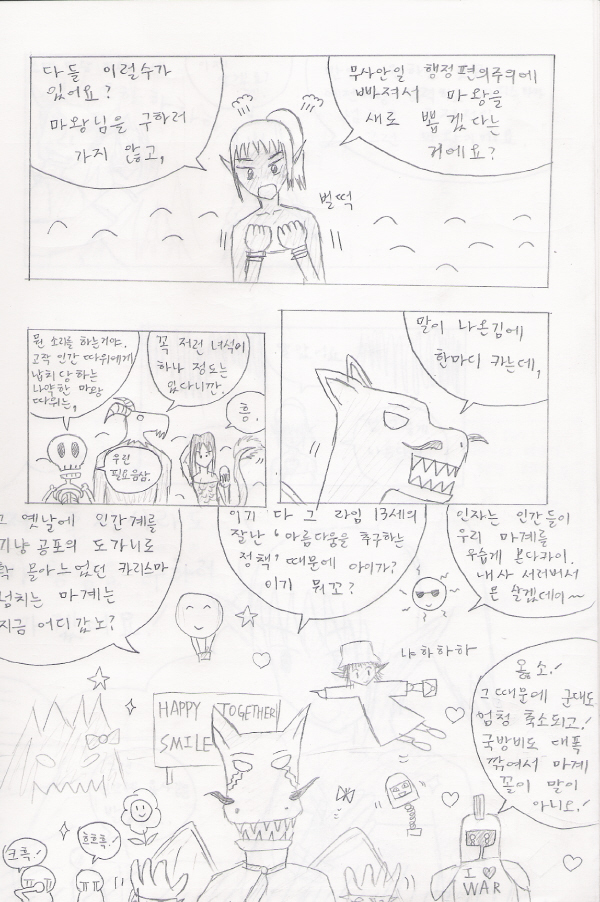 다들 이럴수가
있어요?
마왕님을 구하러
가지 않고,
무사안일 행정편의주의에
빠져서 마왕을
새로 뽑겠다는
거에요?
벌떡
뭔 소리를 하는거야.
고작 인간 따위에게
납치 당하는
나약한 마왕
따위는,
우린
필요음슴.
꼭 저런 녀석이
하나 정도는
있다니깐.
흥.
말이 나온김에
한마디 카는데,
그 옛날에 인간계를
기냥 공포의 도가니로
확 몰아느었던 카리스마
넘치는 마계는
지금 어디갔노?
이기 다 그 라임 13세의
잘난 '아름다움을 추구하는
정책' 때문에 아이가?
이기 뭐꼬?
인자는 인간들이
우리 마계를
우습게 본다카이.
내사 서러버서
몬 살겠데이~
냐하하하
HAPPY TOGETHER!
SMILE
옳소!
그 때문에 군대도
엄청 축소되고!
국방비도 대폭
깎여서 마계
꼴이 말이
아니요!
크흑!
흐흐흑!
I ♡
WAR